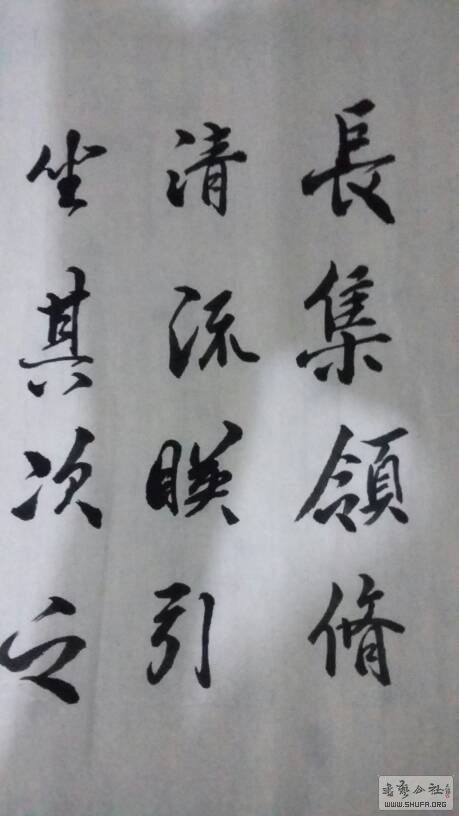 長集領脩
清流暎引
坐其次之
WWW.SHUFA.ORG